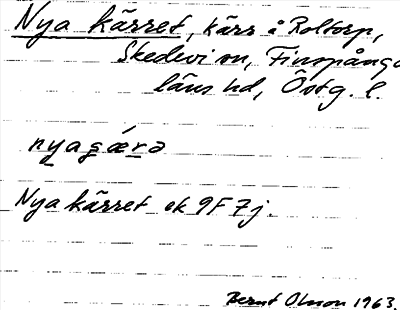 Nya kärret, kärr å Roltorp,
Skedevi sn, Finspånga
läns hd, Östg. l.
nyaʂǽrə
Nya kärret ek 9F 7j.
Bernt Olsson 1963.